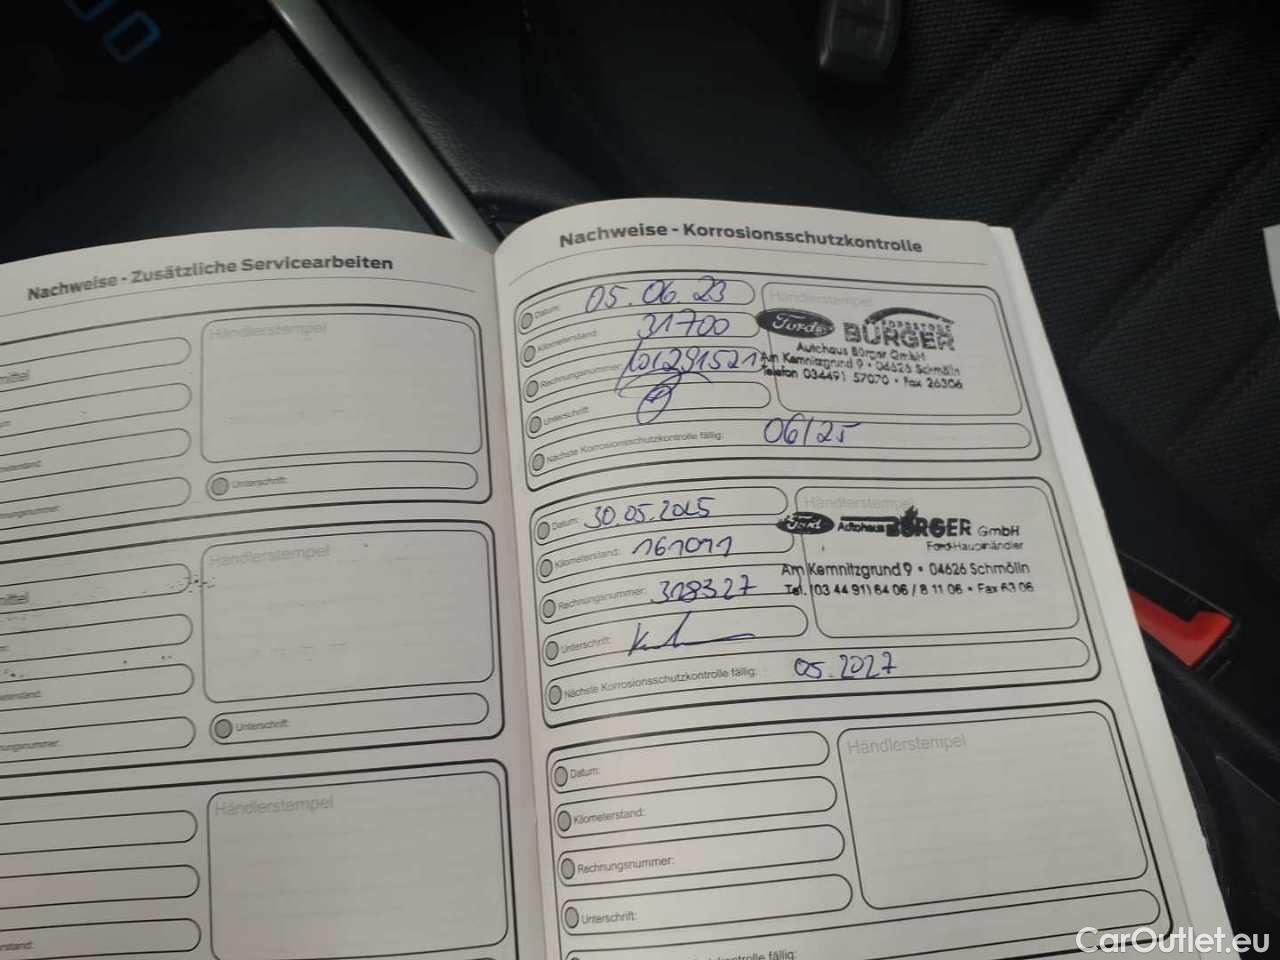 Nachweise - Zusätzliche Servicearbeiten
Händlerstempel
mittel
Kilometerstand:
Rechnungsnummer:
Unterschrift:
Händlerstempel
mittel
Kilometerstand:
Rechnungsnummer:
Unterschrift:
Händlerstempel
Nachweise - Korrosionsschutzkontrolle
Datum: 05.06.23
Kilometerstand: 31700
Rechnungsnummer:
Unterschrift:
Nächste Korrosionsschutzkontrolle fällig: 06/25
Händlerstempel
Ford
BÜRGER
Autohaus Bürger GmbH
Am Kemnitzgrund 9 • 04626 Schmölln
Telefon 034491 57070 • Fax 26306
Datum: 30.05.2025
Kilometerstand: 161011
Rechnungsnummer: 318327
Unterschrift:
Nächste Korrosionsschutzkontrolle fällig: 05.2027
Händlerstempel
Ford Autohaus BÜRGER GmbH
Ford-Haupthändler
Am Kemnitzgrund 9 • 04626 Schmölln
Tel. (03 44 91) 64 06 / 8 11 06 • Fax 63 06
Datum:
Kilometerstand:
Rechnungsnummer:
Unterschrift:
Händlerstempel
CarOutlet.eu